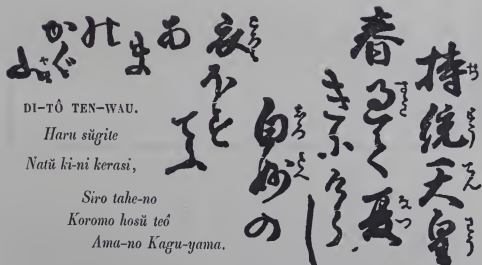 持統天皇
春過て夏
きにけらし
白妙の
衣ほす
てふ
あ
ま
の
かぐ
山
DI-TÔ TEN-WAU.
Haru sŭgite
Natŭ ki-ni kerasi,
Siro tahe-no
Koromo hosŭ teô
Ama-no Kagu-yama.